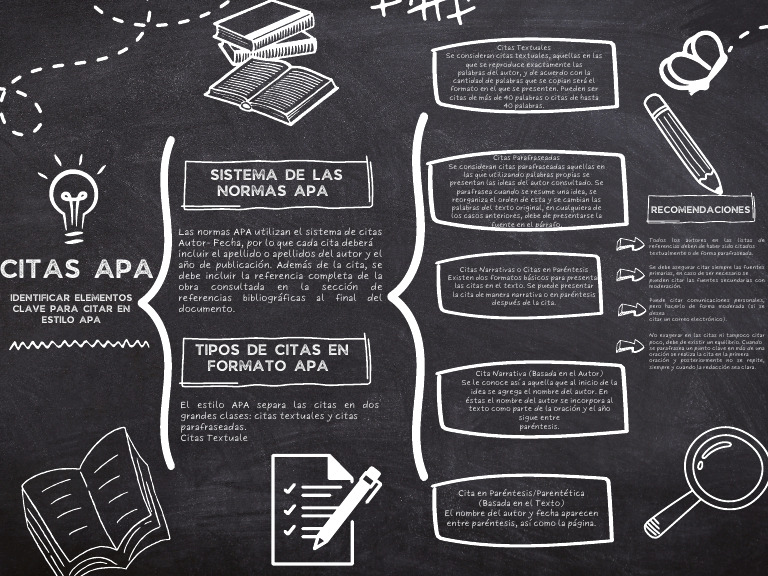 CITAS APA
IDENTIFICAR ELEMENTOS
CLAVE PARA CITAR EN
ESTILO APA
SISTEMA DE LAS
NORMAS APA
Las normas APA utilizan el sistema de citas
Autor- Fecha, por lo que cada cita deberá
incluir el apellido o apellidos del autor y el
año de publicación. Además de la cita, se
debe incluir la referencia completa de la
obra consultada en la sección de
referencias bibliográficas al final del
documento.
TIPOS DE CITAS EN
FORMATO APA
El estilo APA separa las citas en dos
grandes clases: citas textuales y citas
parafraseadas.
Citas Textuale
Citas Textuales
Se consideran citas textuales, aquellas en las
que se reproduce exactamente las
palabras del autor, y de acuerdo con la
cantidad de palabras que se copian será el
formato en el que se presenten. Pueden ser
citas de más de 40 palabras o citas de hasta
40 palabras.
Citas Parafraseadas
Se consideran citas parafraseadas aquellas en
las que utilizando palabras propias se
presentan las ideas del autor consultado. Se
parafrasea cuando se resume una idea, se
reorganiza el orden de esta y se cambian las
palabras del texto original, en cualquiera de
los casos anteriores, debe de presentarse la
fuente en el párrafo.
Citas Narrativas o Citas en Paréntesis
Existen dos formatos básicos para presentar
las citas en el texto. Se puede presentar
la cita de manera narrativa o en paréntesis
después de la cita.
Cita Narrativa (Basada en el Autor)
Se le conoce así a aquella que al inicio de la
idea se agrega el nombre del autor. En
éstas el nombre del autor se incorpora al
texto como parte de la oración y el año
sigue entre
paréntesis.
Cita en Paréntesis/Parentética
(Basada en el Texto)
El nombre del autor y fecha aparecen
entre paréntesis, así como la página.
RECOMENDACIONES
Todos los autores en las listas de
referencias deben de haber sido citados
textualmente o de forma parafraseada.
Se debe asegurar citar siempre las fuentes
primarias, en caso de ser necesario se
pueden citar las fuentes secundarias con
moderación.
Puede citar comunicaciones personales,
pero hacerlo de forma moderada (si se
desea
citar un correo electrónico).
No exagerar en las citas ni tampoco citar
poco, debe de existir un equilibrio. Cuando
se parafrasea un punto clave en más de una
oración se realiza la cita en la primera
oración y posteriormente no se repite,
siempre y cuando la redacción sea clara.